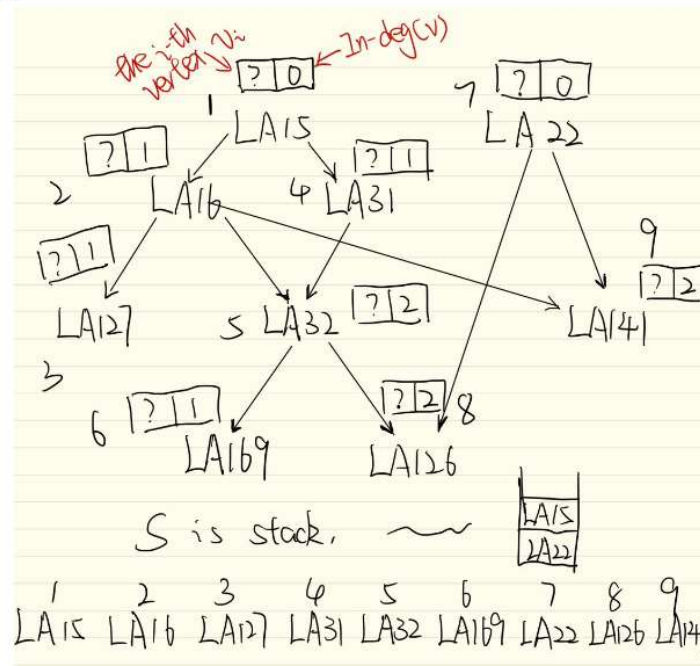 the i-th
vertex vi
? 0
In-deg(v)
1
LA15
7
? 0
LA22
? 1
2
LA16
? 1
4 LA31
? 1
LA127
3
5 LA32
? 2
9
? 2
LA141
6
? 1
LA169
? 2
8
LA126
S is stack.
LA15
LA22
1 2 3 4 5 6 7 8 9
LA15 LA16 LA127 LA31 LA32 LA169 LA22 LA126 LA14